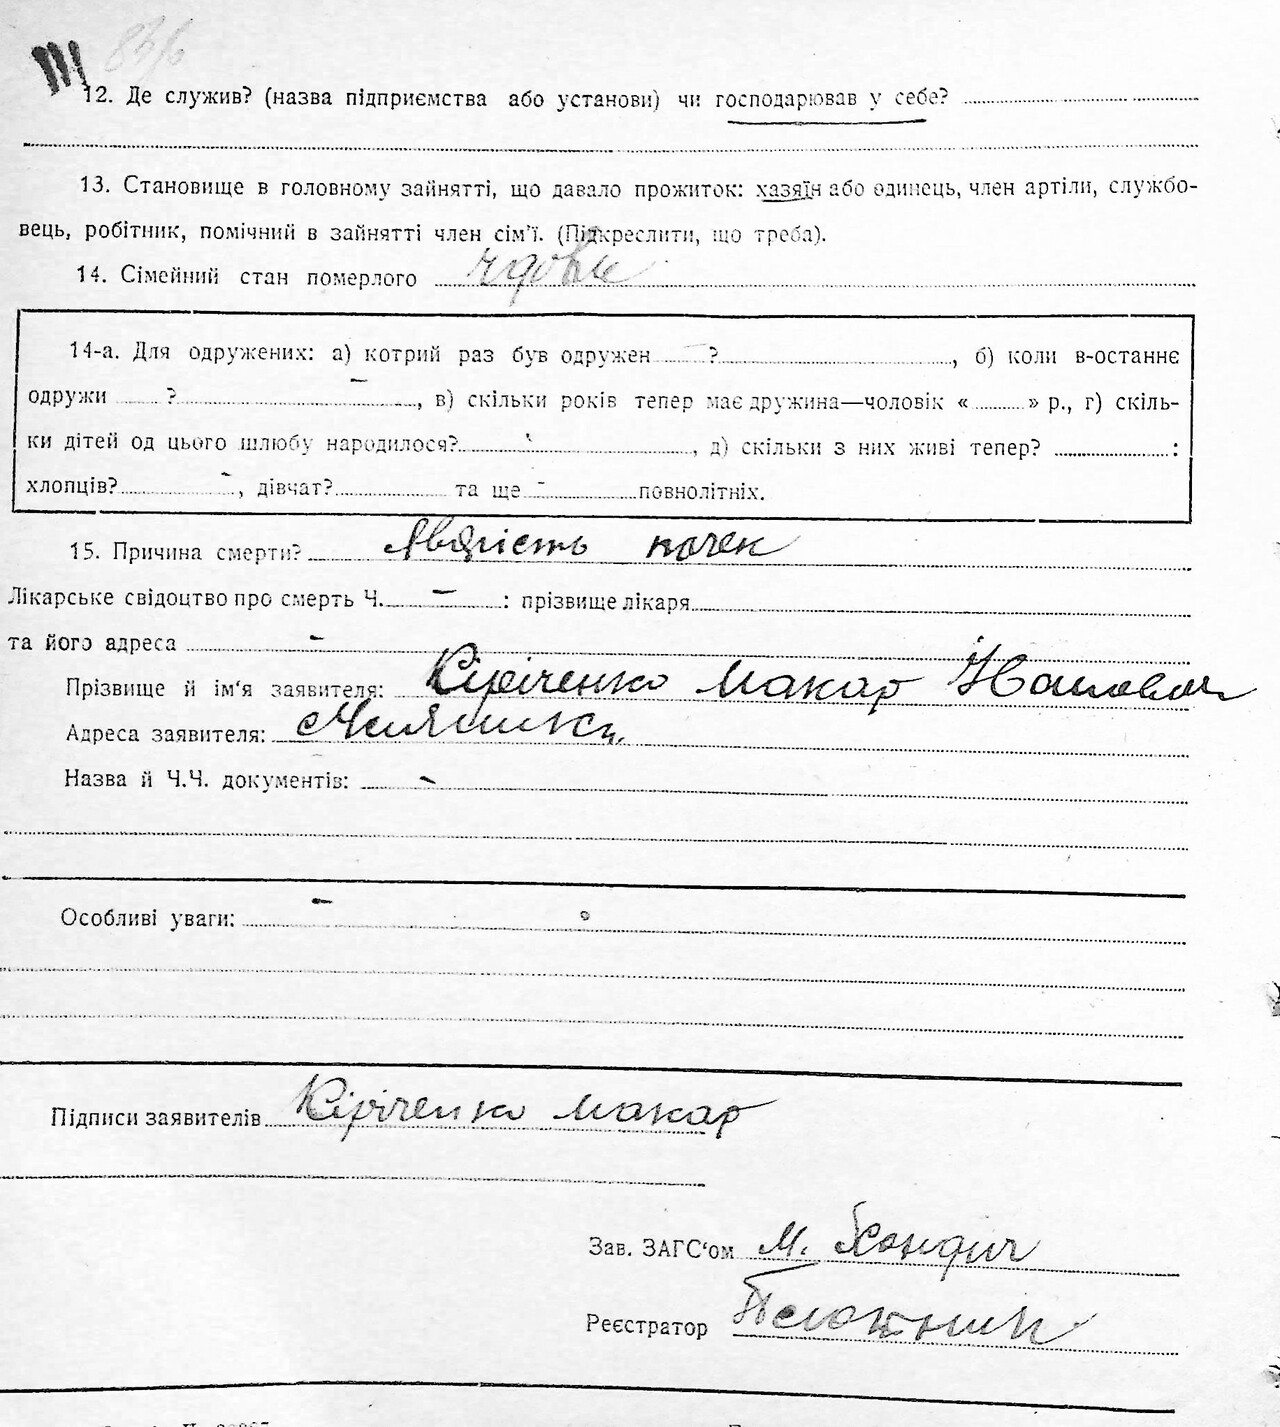 12. Де служив? (назва підприємства або установи) чи господарював у себе?
13. Становище в головному зайнятті, що давало прожиток: хазяїн або одинець, член артіли, службо-
вець, робітник, помічний в зайнятті член сім'ї. (Підкреслити, що треба).
14. Сімейний стан померлого
14-а. Для одружених: а) котрий раз був одружен ? , б) коли в-останнє
одружи ? – , в) скільки років тепер має дружина—чоловік « » р., г) скіль-
ки дітей од цього шлюбу народилося? , д) скільки з них живі тепер? :
хлопців? - , дівчат? та ще - повнолітніх.
15. Причина смерти? почек
Лікарське свідоцтво про смерть Ч. – : прізвище лікаря
та його адреса -
Прізвище й ім'я заявителя: Кіріченко Макар
Адреса заявителя:
Назва й Ч.Ч. документів: -
Особливі уваги: -
Підписи заявителів Кіріченко Макар
Зав. ЗАГС'ом М.
Реєстратор